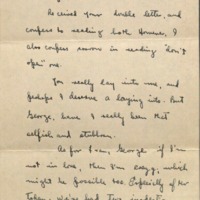 Received your double letter, and
confess to reading both. However, I
also confess reason in reading "don't
open" one.
You really lay into me, and
perhaps I deserve a laying into. But
George, have I really been that
selfish and stubborn.
As for I am, George if I'm
not in love, then I'm crazy, which
might be possible too. Especially if
taken,